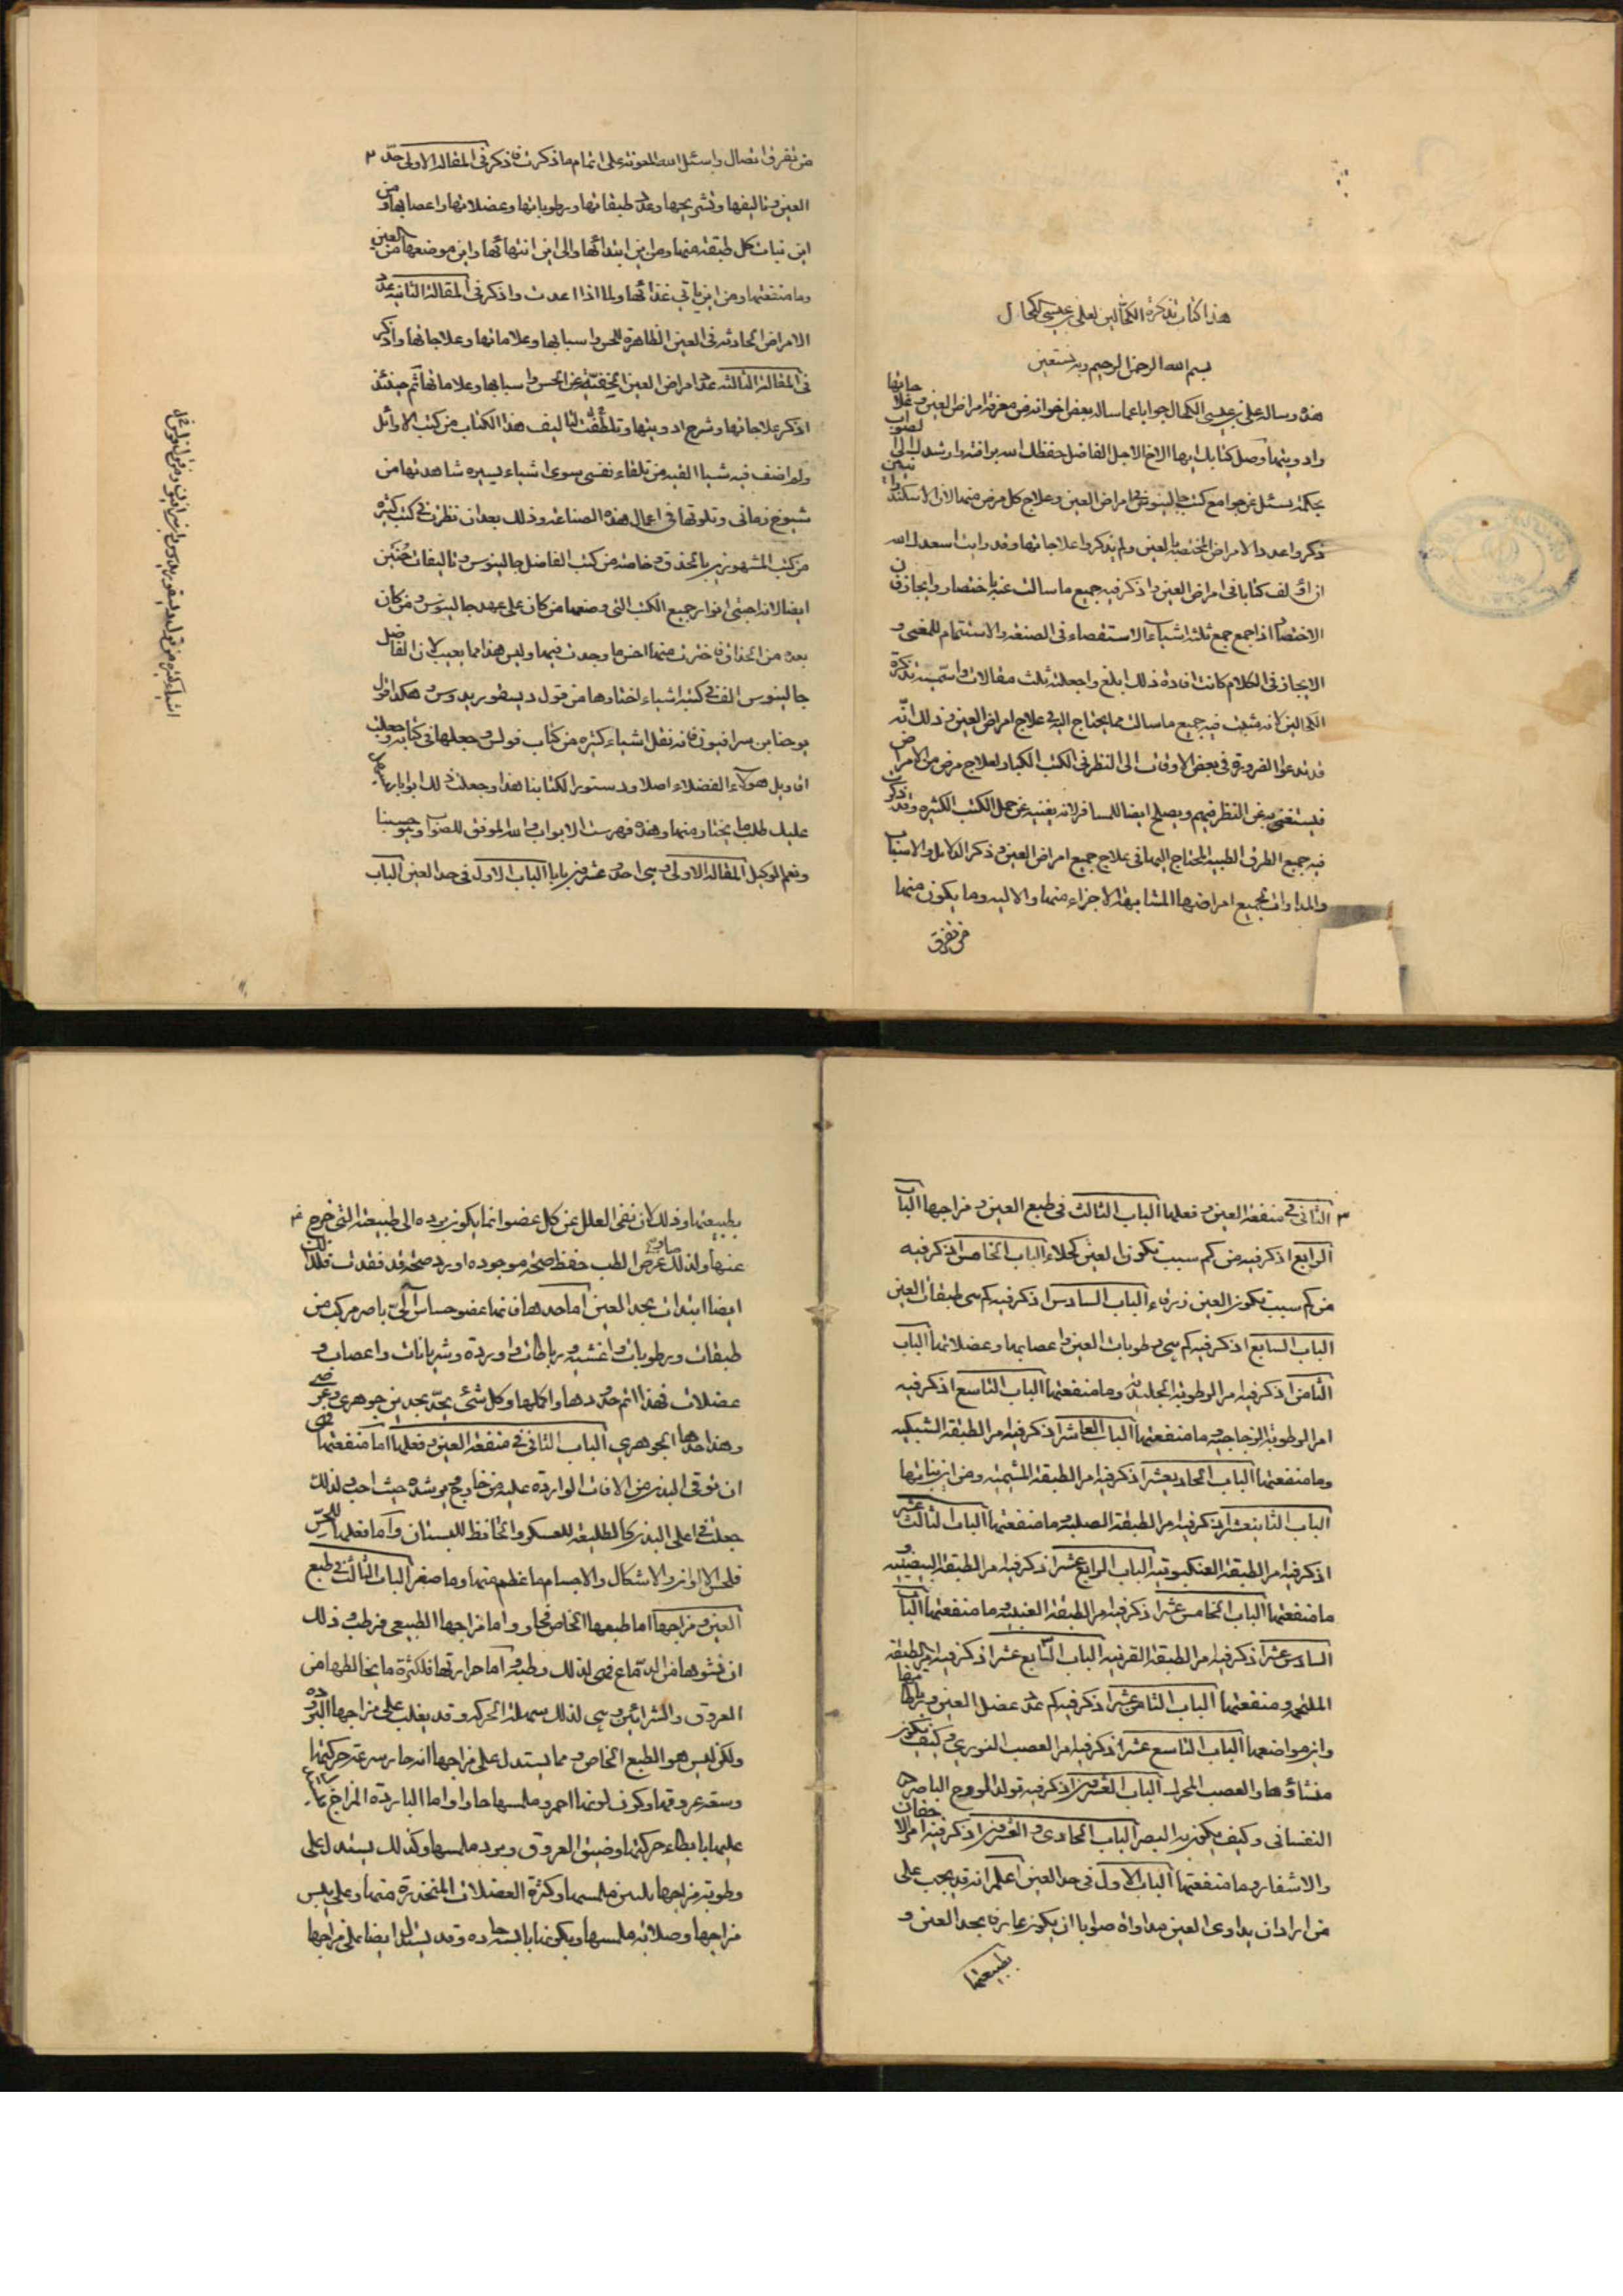 هذا كتاب تذكرة الكحالين لعلي بن عيسى الكحال
بسم الله الرحمن الرحيم وبه نستعين
هذه رسالة علي بن عيسى الكحال جوابا عما ساله بعض اخوانه من معرفة امراض العين وعلاجاتها
وادويتها وصل كتابك ايها الاخ الاجل الفاضل حفظك الله برافته وارشدك الى الصواب
بحكمته يسئل عن جوامع كتب جالينوس في امراض العين وعلاج كل مرض منها لان الاسكندرانيين
ذكروا عدد الامراض المختصة بالعين ولم يذكروا علاجاتها وقد رايت اسعدك الله
ان اولف كتابا في امراض العين واذكر فيه جميع ما سالت عنه باختصار وايجاز فان
الاختصار اذا جمع جمع ثلثة اشياء الاستقصاء في الصنعة والاستتمام للمعنى و
الايجاز في الكلام كانت افادة ذلك ابلغ واجعله ثلث مقالات واسميته تذكرة
الكحالين لانه مثبت فيه جميع ما سالت مما يحتاج اليه في علاج امراض العين وذلك انه
قد تدعوا الضرورة في بعض الاوقات الى النظر في الكتب الكبار لعلاج مرض من الامراض
فيستغنى به عن النظر فيهم ويصلح ايضا للمسافر لانه يغنيه عن حمل الكتب الكثيره وقد ذكرت
فيه جميع الطرق الطبيه المحتاج اليها في علاج جميع امراض العين وذكر الدلائل والاسباب
والمداوات لجميع امراضها المتشابهة الاجزاء منها والاليه وما يكون منها
من تفرق
من تفرق اتصال واسئل الله المعونة على اتمام ما ذكرت فاذكر في المقالة الاولى حد ٢
العين وتاليفها وتشريحها وعدد طبقاتها ورطوباتها وعضلاتها واعصابها ومن
اين نبات كل طبقة منها ومن اين ابتدائها والى اين انتهائها واين موضعها من العين
وما منفعتها ومن اين ياتي غذائها ولماذا اعدت واذكر في المقالة الثانيه عدد
الامراض الحادثة في العين الظاهرة للحس واسبابها وعلاماتها وعلاجاتها واذكر
في المقالة الثالثه عدد امراض العين الخفية عن الحس واسبابها وعلاماتها ثم حينئذ
اذكر علاجاتها وشرح ادويتها وتلطفت لتاليف هذا الكتاب من كتب الاوائل
ولم اضف فيه شيا الفيه من تلقاء نفسي سوى اشياء يسيره شاهدتها من
شيوخ زماني وتلوتها في اعمال هذه الصناعة وذلك بعد ان نظرت في كتب كثيره
من كتب المشهورين بالحذق وخاصة من كتب الفاضل جالينوس وتاليفات حنين
ايضا لانه اجتنى انوار جميع الكتب التي وضعها من كان على عهد جالينوس ومن كان
بعده من الحذاق فاخترت منها اخص ما وجدت فيها وليس هذا مما يعيب لان الفاضل
جالينوس الف في كتبه اشياء اختارها من قول ديسقوريدوس وهكذا
يوحنا بن سرافيون فانه نقل اشياء كثيره من كتاب فولس وجعلها في كتابه وجعلت
اقاويل هولاء الفضلاء اصلا ودستورا لكتابنا هذا وجعلت ذلك ابوابا
عليك طلب ما تختار منها وهذه فهرست الابواب والله الموفق للصواب وهو حسبنا
ونعم الوكيل المقالة الاولى وهي احد وعشرين بابا الباب الاول في حد العين الباب
٣ الثاني في منفعة العين وفعلها الباب الثالث في طبع العين ومزاجها الباب
الرابع اذكر فيه من كم سبب تكون العين كحلاء الباب الخامس اذكر فيه
من كم سبب تكون العين زرقاء الباب السادس اذكر فيه كم هي طبقات العين
الباب السابع اذكر فيه كم هي رطوبات العين واعصابها وعضلاتها الباب
الثامن اذكر فيه امر الرطوبة الجليدية وما منفعتها الباب التاسع اذكر فيه
امر الرطوبة الزجاجية وما منفعتها الباب العاشر اذكر فيه امر الطبقة الشبكيه
وما منفعتها الباب الحادي عشر اذكر فيه امر الطبقة المشيمية ومن اين نباتها
الباب الثاني عشر اذكر فيه امر الطبقة الصلبة وما منفعتها الباب الثالث عشر
اذكر فيه امر الطبقة العنكبوتية الباب الرابع عشر اذكر فيه امر الطبقة البيضية و
ما منفعتها الباب الخامس عشر اذكر فيه امر الطبقة العنبية وما منفعتها الباب
السادس عشر اذكر فيه امر الطبقة القرنية الباب السابع عشر اذكر فيه امر الطبقة
الملتحم ومنفعتها الباب الثامن عشر اذكر فيه كم عدد عضل العين
واين مواضعها الباب التاسع عشر اذكر فيه امر العصب النوري وكيف يكون
منشاؤها والعصب المحرك الباب العشرين اذكر فيه تولد الروح الباصره
النفساني وكيف يكون به البصر الباب الحادي والعشرين اذكر فيه امر الاجفان
والاشفار وما منفعتها الباب الاول في حد العين اعلم انه قد يجب على
من اراد ان يداوى العين مداواة صوابا ان يكون عارفا بحد العين و
بطبيعتها
بطبيعتها وذلك لان نفى العلل عن كل عضو انما يكون برده الى طبيعته التي خرج ٤
عنها ولذلك صار غرض الطب حفظ صحة موجوده او رد صحة قد فقدت فلذلك
ايضا ابتدات بحد العين اما حدها فانها عضو حساس الي باصر مركب من
طبقات ورطوبات واغشيه ورباطات واورده وشريانات واعصاب و
عضلات فهذا اتم حدودها واكملها وكل شئ يحد بحدين جوهري وعرضي
وهذا حدها الجوهري الباب الثاني في منفعة العين وفعلها اما منفعتها فهي
ان توقي البدن من الافات الوارده عليه من خارج حيث احب ولذلك
جعلت في اعلى البدن كالطليعة للعسكر والحافظ للبستان واما فعلها للحس
فلحس الالوان والاشكال والاجسام ما عظم منها وما صغر الباب الثالث في طبع
العين ومزاجها اما طبعها الخاص فحار واما مزاجها الطبيعي فرطب وذلك
ان نشوها من الدماغ فهي لذلك رطبه واما حرارتها فلكثرة ما يخالطها من
العروق والشرائين وهي لذلك سهلة الحركه وقد يغلب على مزاجها البروده
ولكن ليس هو الطبع الخاص ومما يستدل على مزاجها انه حار سرعة حركتها
وسعة عروقها وكون لونها احمر وملمسها حارا واما الباردة المزاج
عليها بابطاء حركتها وضيق العروق وبرد ملمسها وكذلك يستدل على
رطوبة مزاجها بلين ملمسها وكثرة الفضلات المنحدرة منها وعلى يبس
مزاجها وصلابة ملمسها وقد يستدل ايضا على مزاجها